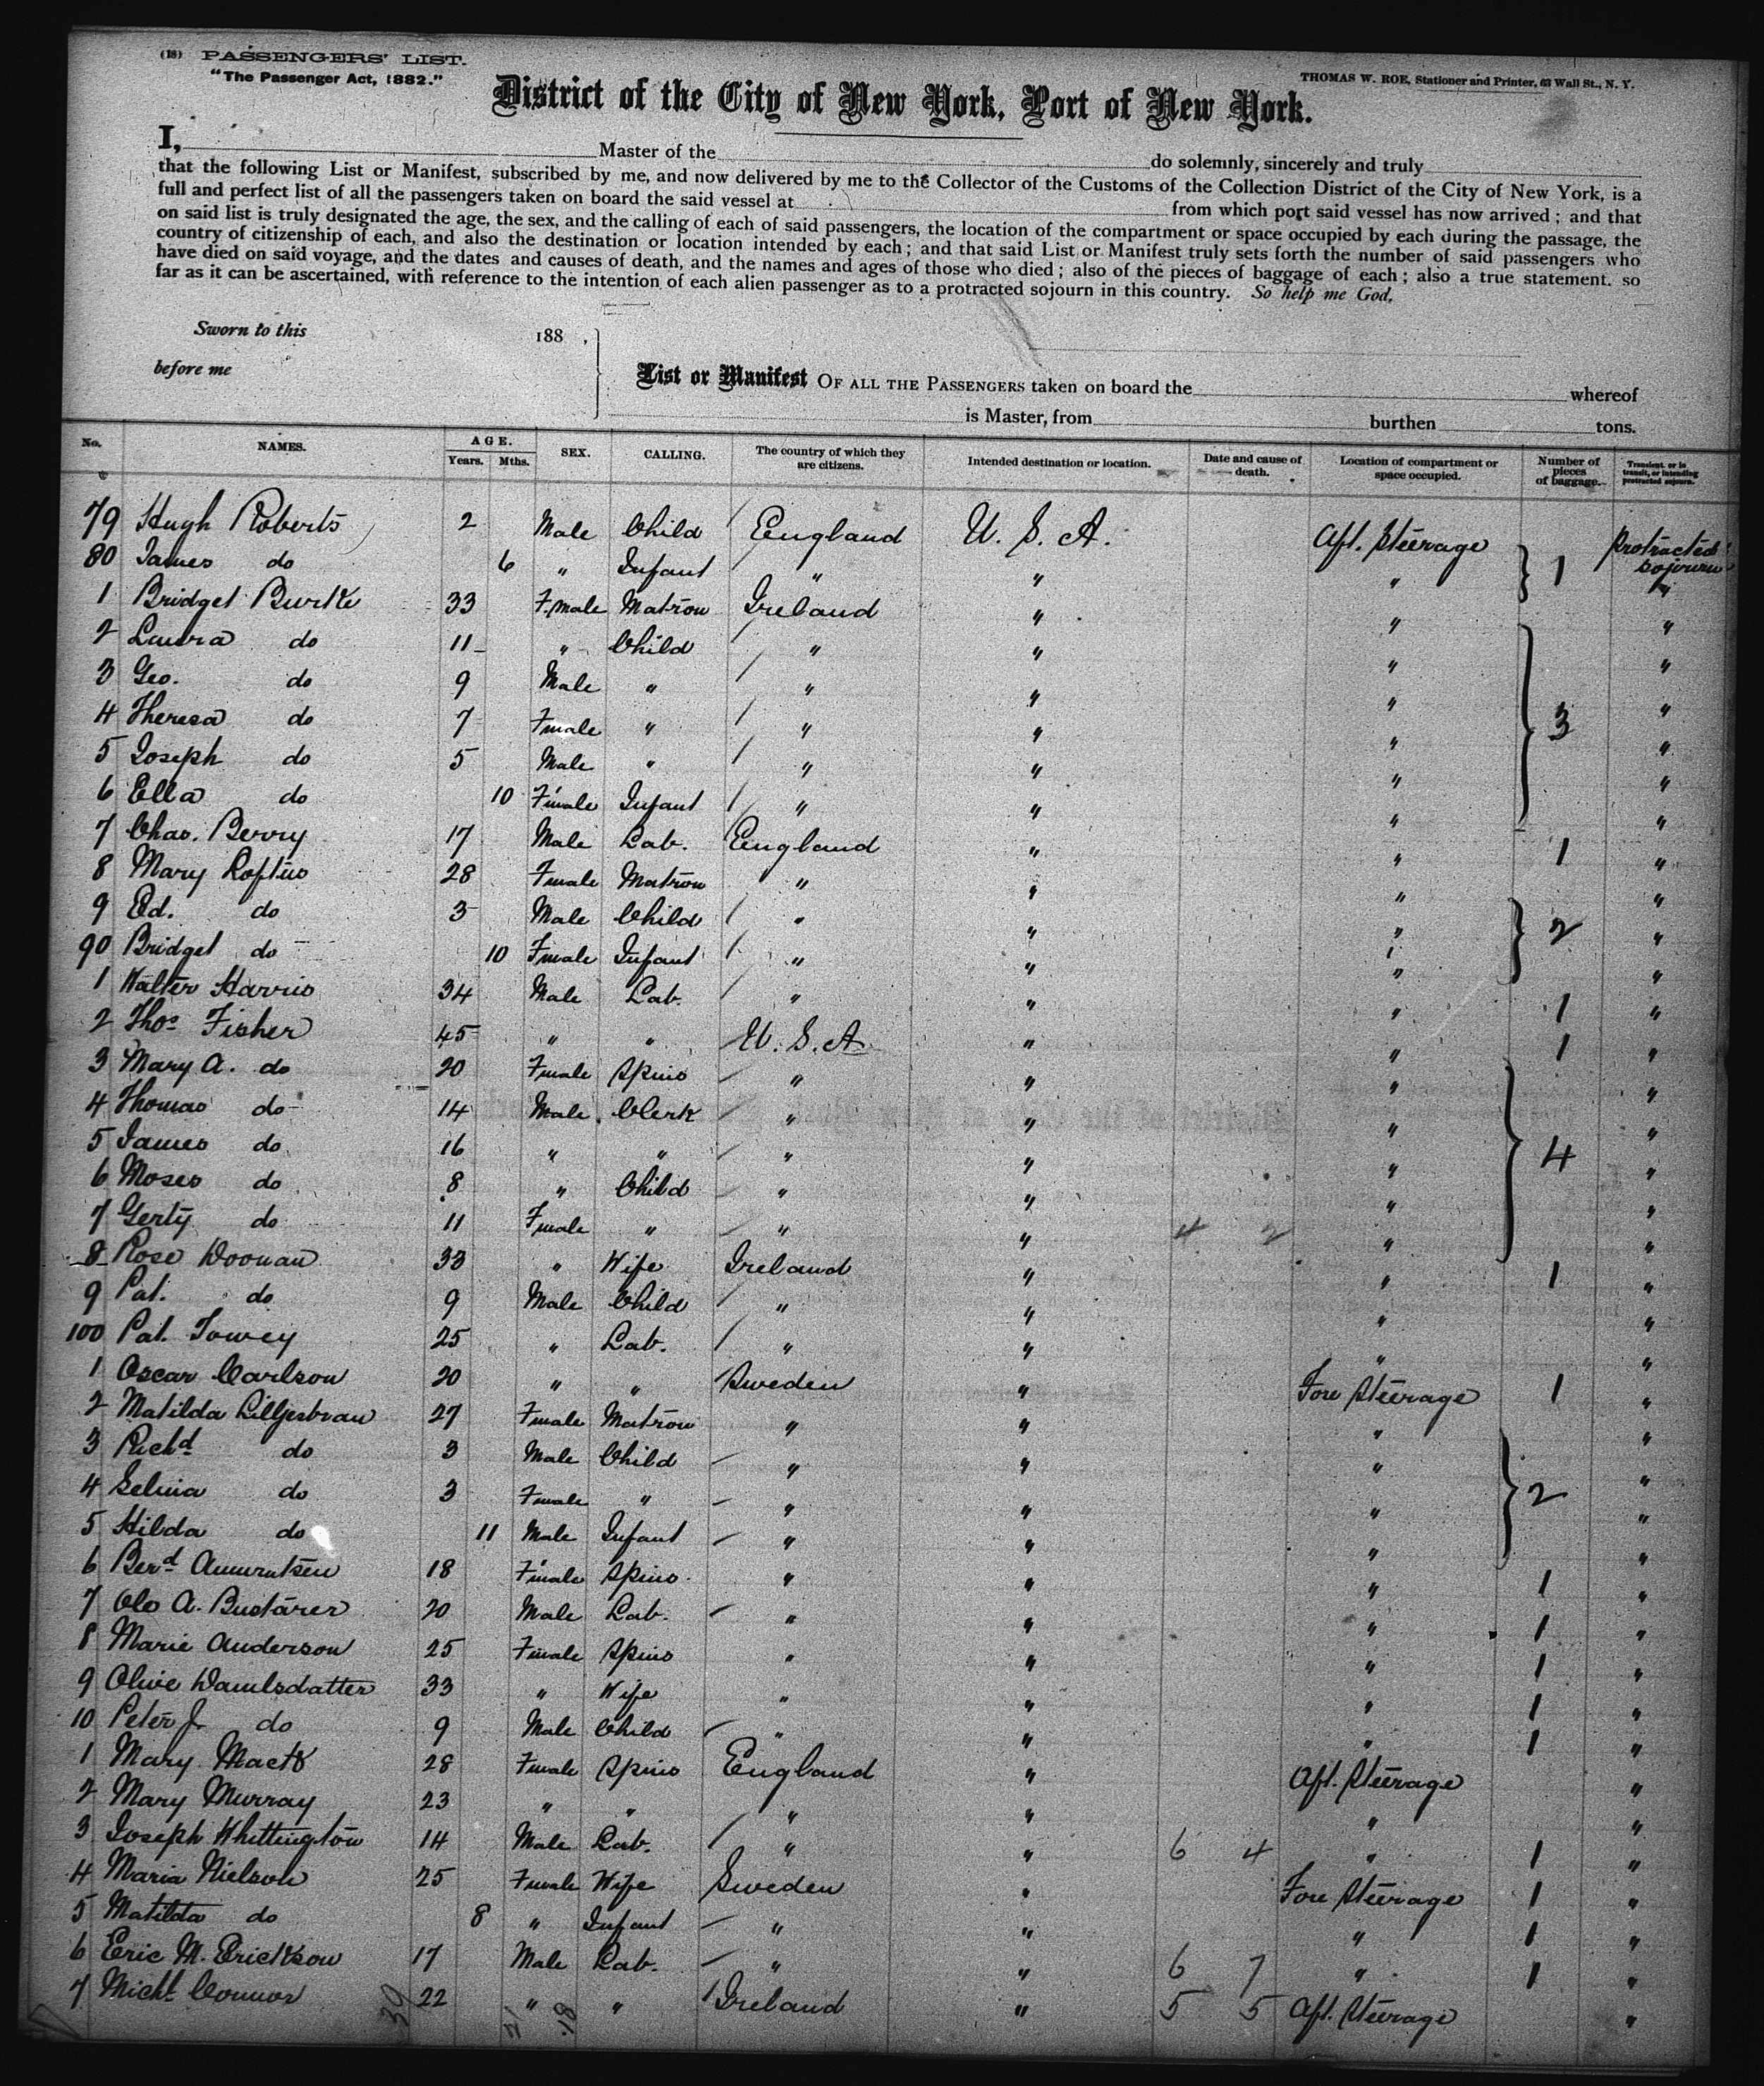 (18) PASSENGERS' LIST.
"The Passenger Act, 1882."
THOMAS W. ROE, Stationer and Printer, 63 Wall St., N. Y.
District of the City of New York, Port of New York.
I, Master of the do solemnly, sincerely and truly
that the following List or Manifest, subscribed by me, and now delivered by me to the Collector of the Customs of the Collection District of the City of New York, is a
full and perfect list of all the passengers taken on board the said vessel at from which port said vessel has now arrived; and that
on said list is truly designated the age, the sex, and the calling of each of said passengers, the location of the compartment or space occupied by each during the passage, the
country of citizenship of each, and also the destination or location intended by each; and that said List or Manifest truly sets forth the number of said passengers who
have died on said voyage, and the dates and causes of death, and the names and ages of those who died; also of the pieces of baggage of each; also a true statement, so
far as it can be ascertained, with reference to the intention of each alien passenger as to a protracted sojourn in this country. So help me God,
Sworn to this 188 ,
before me
List or Manifest OF ALL THE PASSENGERS taken on board the whereof
is Master, from burthen tons.
No. NAMES. AGE. Years. Mths. SEX. CALLING. The country of which they are citizens. Intended destination or location. Date and cause of death. Location of compartment or space occupied. Number of pieces of baggage. Transient, or in transit, or intending protracted sojourn.
79 Hugh Roberts 2 Male Child England U. S. A. Aft. Steerage Protracted sojourn
80 James do 6 " Infant " " " 1 "
1 Bridget Burke 33 Female Matron Ireland " " "
2 Laura do 11 " Child " " " "
3 Geo. do 9 Male " " " " "
4 Theresa do 7 Female " " " " 3 "
5 Joseph do 5 Male " " " " "
6 Ella do 10 Female Infant " " " "
7 Chas. Berry 17 Male Lab. England " " 1 "
8 Mary Loftus 28 Female Matron " " " "
9 Ed. do 3 Male Child " " " 2 "
90 Bridget do 10 Female Infant " " " "
1 Walter Harris 34 Male Lab. " " " 1 "
2 Thos Fisher 45 " " U. S. A " " 1 "
3 Mary A. do 20 Female Spins " " " "
4 Thomas do 14 Male Clerk " " " "
5 James do 16 " " " " " 4 "
6 Moses do 8 " Child " " " "
7 Gerty do 11 Female " " " 4 2 " "
8 Rose Doonan 33 " Wife Ireland " " 1 "
9 Pat. do 9 Male Child " " " "
100 Pat. Towey 25 " Lab. " " " "
1 Oscar Carlson 20 " " Sweden " Fore Steerage 1 "
2 Matilda 27 Female Matron " " " "
3 Richd do 3 Male Child " " " "
4 Selina do 3 Female " " " " 2 "
5 Hilda do 11 Male Infant " " " "
6 Berd 18 Female Spins. " " " 1 "
7 Olo A. 20 Male Lab. " " " 1 "
8 Marie Anderson 25 Female Spins " " " 1 "
9 Olive 33 " Wife " " " 1 "
10 Peter J. do 9 Male Child " " " 1 "
1 Mary Mack 28 Female Spins England " Aft. Steerage "
2 Mary Murray 23 " " " " " "
3 Joseph Whittington 14 Male Lab. " " 6 4 " 1 "
4 Maria Nielson 25 Female Wife Sweden " Fore Steerage 1 "
5 Matilda do 8 " Infant " " " 1 "
6 Eric M. Erickson 17 Male Lab. " " 6 7 " 1 "
7 Michl Connor 22 " " Ireland " 5 5 Aft. Steerage "
39 21 18